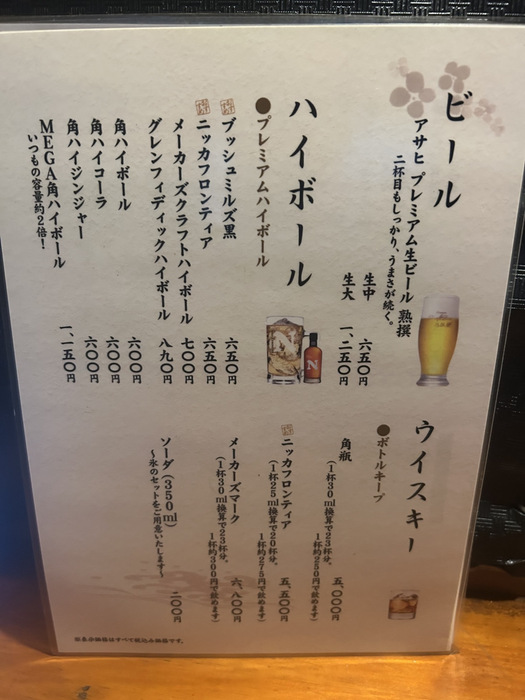 ビール
アサヒ プレミアム生ビール 熟撰
二杯目もしっかり、うまさが続く。
生中 六五〇円
生大 一、二五〇円
ハイボール
●プレミアムハイボール
ブッシュミルズ黒 六五〇円
ニッカフロンティア 六五〇円
メーカーズクラフトハイボール 七〇〇円
グレンフィディックハイボール 八九〇円
角ハイボール 六〇〇円
角ハイコーラ 六〇〇円
角ハイジンジャー 六〇〇円
MEGA角ハイボール 一、一五〇円
いつもの容量約2倍!
ウイスキー
●ボトルキープ
角瓶 五、〇〇〇円
(1杯30ml換算で23杯分。
1杯約250円で飲めます)
ニッカフロンティア 五、五〇〇円
(1杯25ml換算で20杯分。
1杯約275円で飲めます)
メーカーズマーク 六、八〇〇円
(1杯30ml換算で23杯分。
1杯約300円で飲めます)
ソーダ(350ml) 二〇〇円
〜氷のセットをご用意いたします〜
N
N